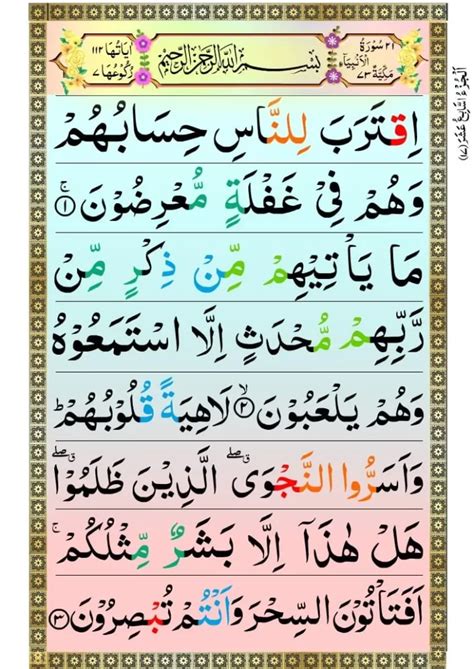 ٢١ سُوْرَةُ الْاَنْۢبِيَآءِ
مَكِّيَّةٌ ٧٣
بِسْمِ اللّٰهِ الرَّحْمٰنِ الرَّحِيْمِ
اٰيَاتُهَا ١١٢
رُكُوْعُهَا ٧
اَلْجُزْءُ السَّابِعُ عَشَرَ (١٧)
اِقْتَرَبَ لِلنَّاسِ حِسَابُهُمْ
وَهُمْ فِيْ غَفْلَةٍ مُّعْرِضُوْنَ ۚ﴿١﴾
مَا يَاْتِيْهِمْ مِّنْ ذِكْرٍ مِّنْ
رَّبِّهِمْ مُّحْدَثٍ اِلَّا اسْتَمَعُوْهُ
وَهُمْ يَلْعَبُوْنَ ﴿٢﴾ لَاهِيَةً قُلُوْبُهُمْ ؕ
وَاَسَرُّوا النَّجْوَى ۖق الَّذِيْنَ ظَلَمُوْا ۖق
هَلْ هٰذَآ اِلَّا بَشَرٌ مِّثْلُكُمْ ۚ
اَفَتَاْتُوْنَ السِّحْرَ وَاَنْتُمْ تُبْصِرُوْنَ ﴿٣﴾